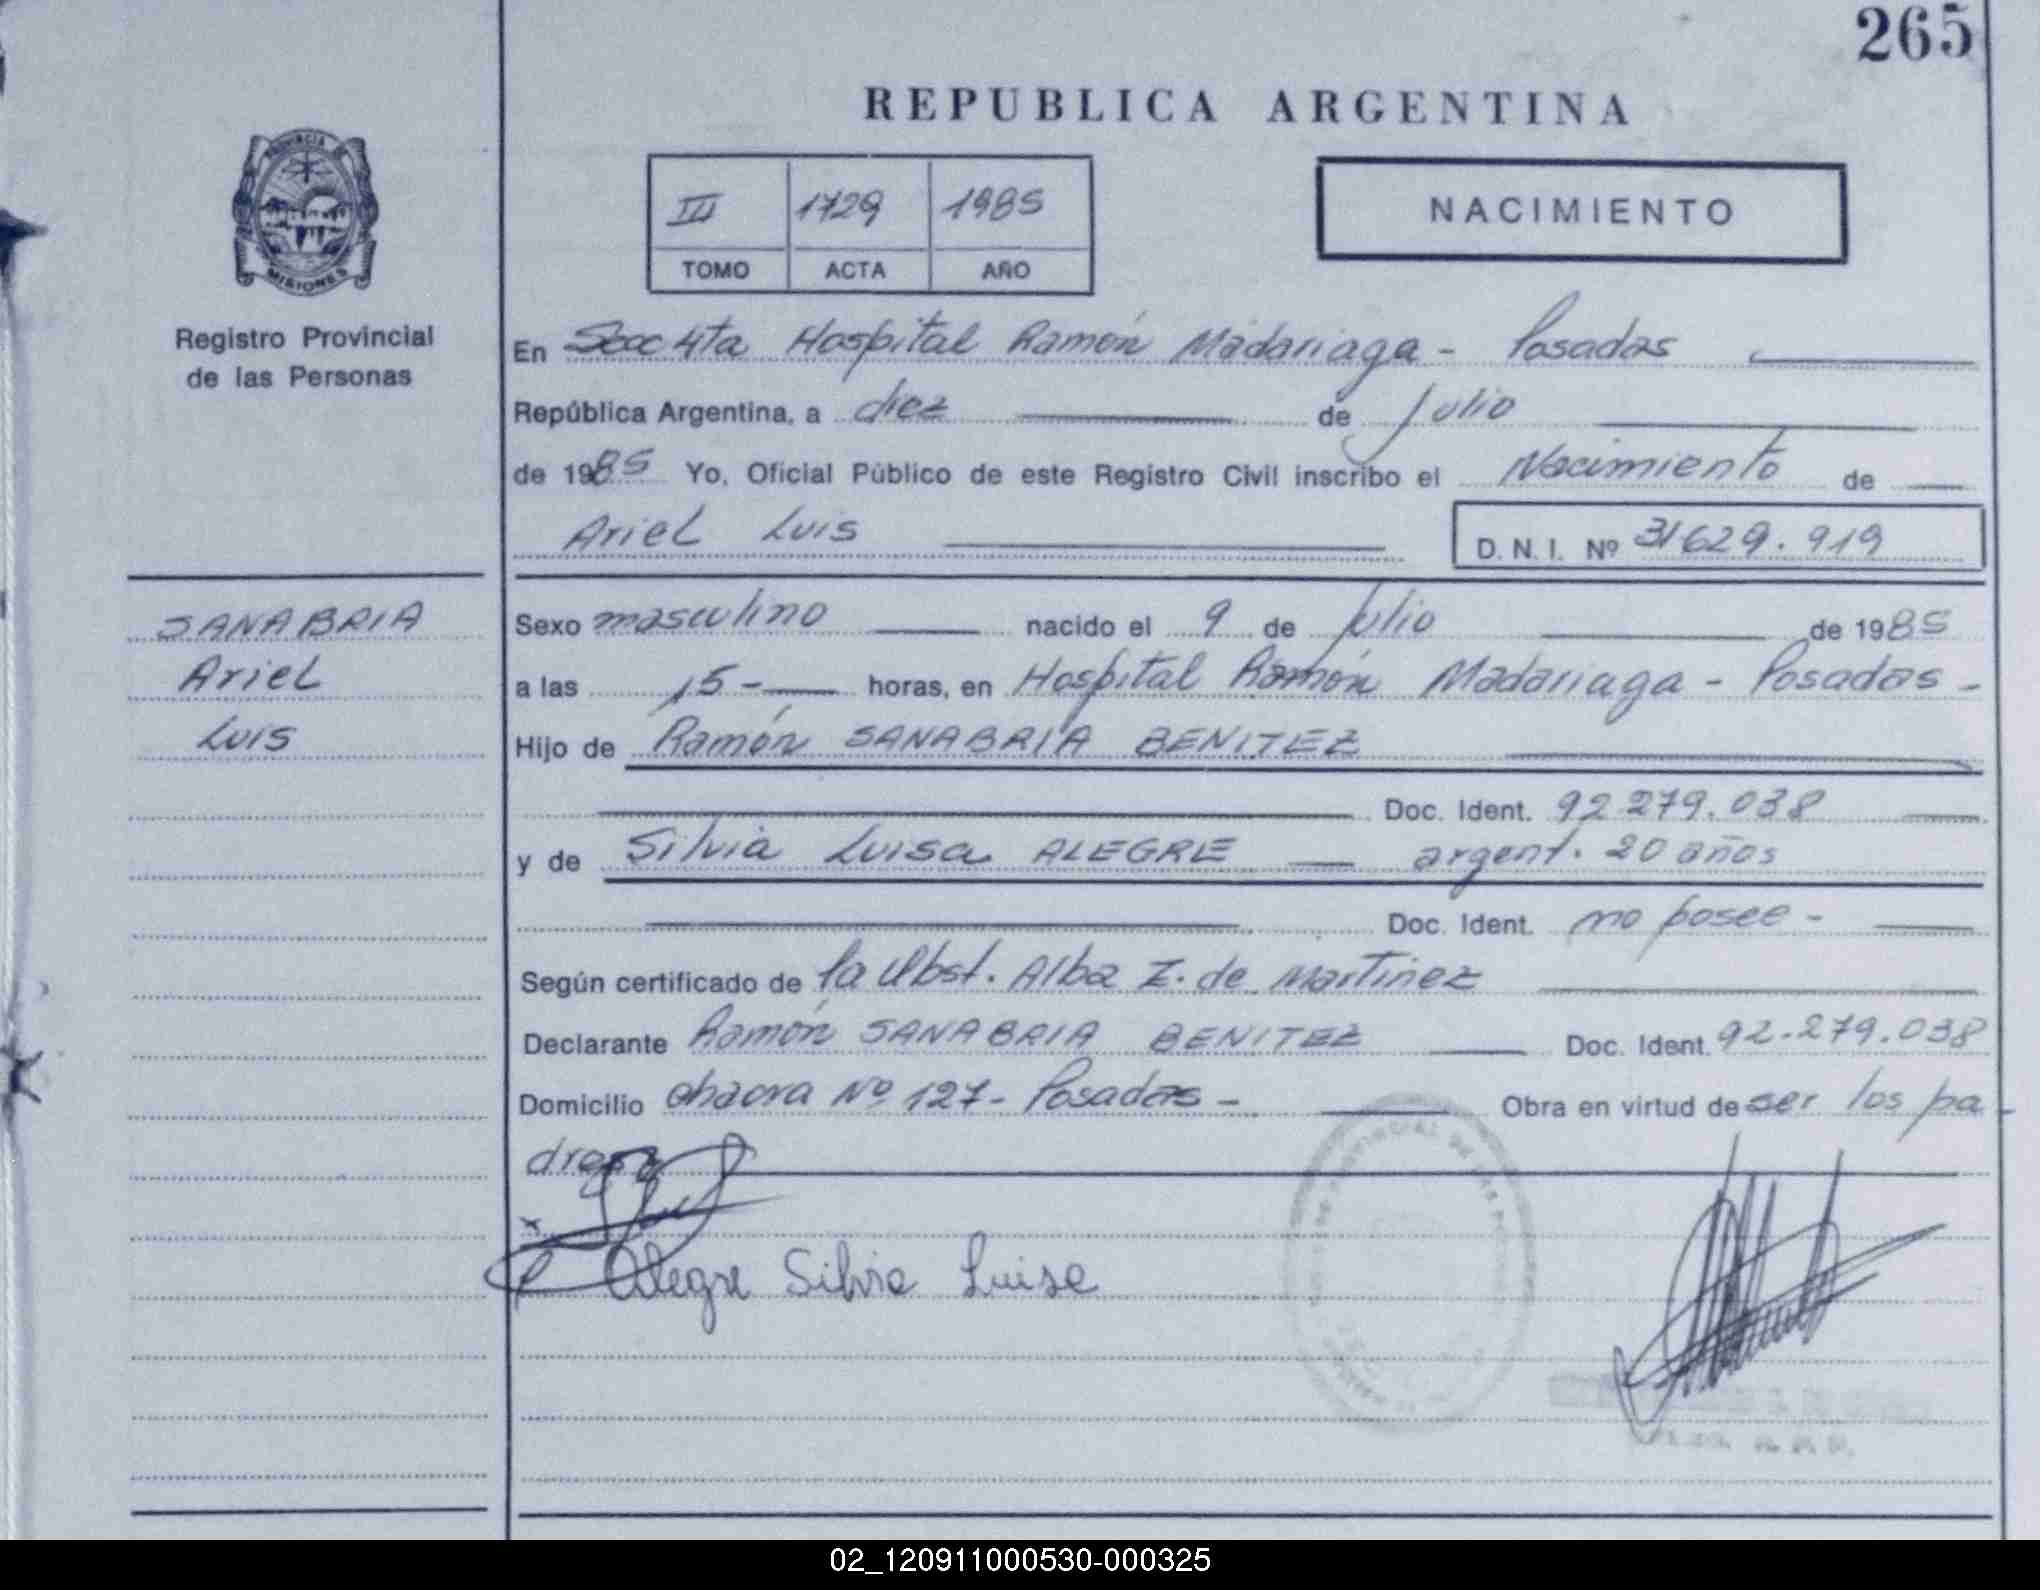 265
REPUBLICA ARGENTINA
PROVINCIA DE
MISIONES
Registro Provincial
de las Personas
III 1729 1985
TOMO ACTA AÑO
NACIMIENTO
En Secc 4ta Hospital Ramón Madariaga - Posadas
República Argentina, a diez de Julio
de 1985 Yo, Oficial Público de este Registro Civil inscribo el Nacimiento de
Ariel Luis D. N. I. Nº 31629.919
SANABRIA
Ariel
Luis
Sexo masculino nacido el 9 de Julio de 1985
a las 15- horas, en Hospital Ramón Madariaga - Posadas -
Hijo de Ramón SANABRIA BENITEZ
Doc. Ident. 92.279.038
y de Silvia Luisa ALEGRE argent. 20 años
Doc. Ident. no posee -
Según certificado de la Obst. Alba Z. de Martinez
Declarante Ramón SANABRIA BENITEZ Doc. Ident. 92.279.038
Domicilio chacra Nº 127 - Posadas - Obra en virtud de ser los pa-
dres
x
Alegre Silvia Luisa
02_120911000530-000325